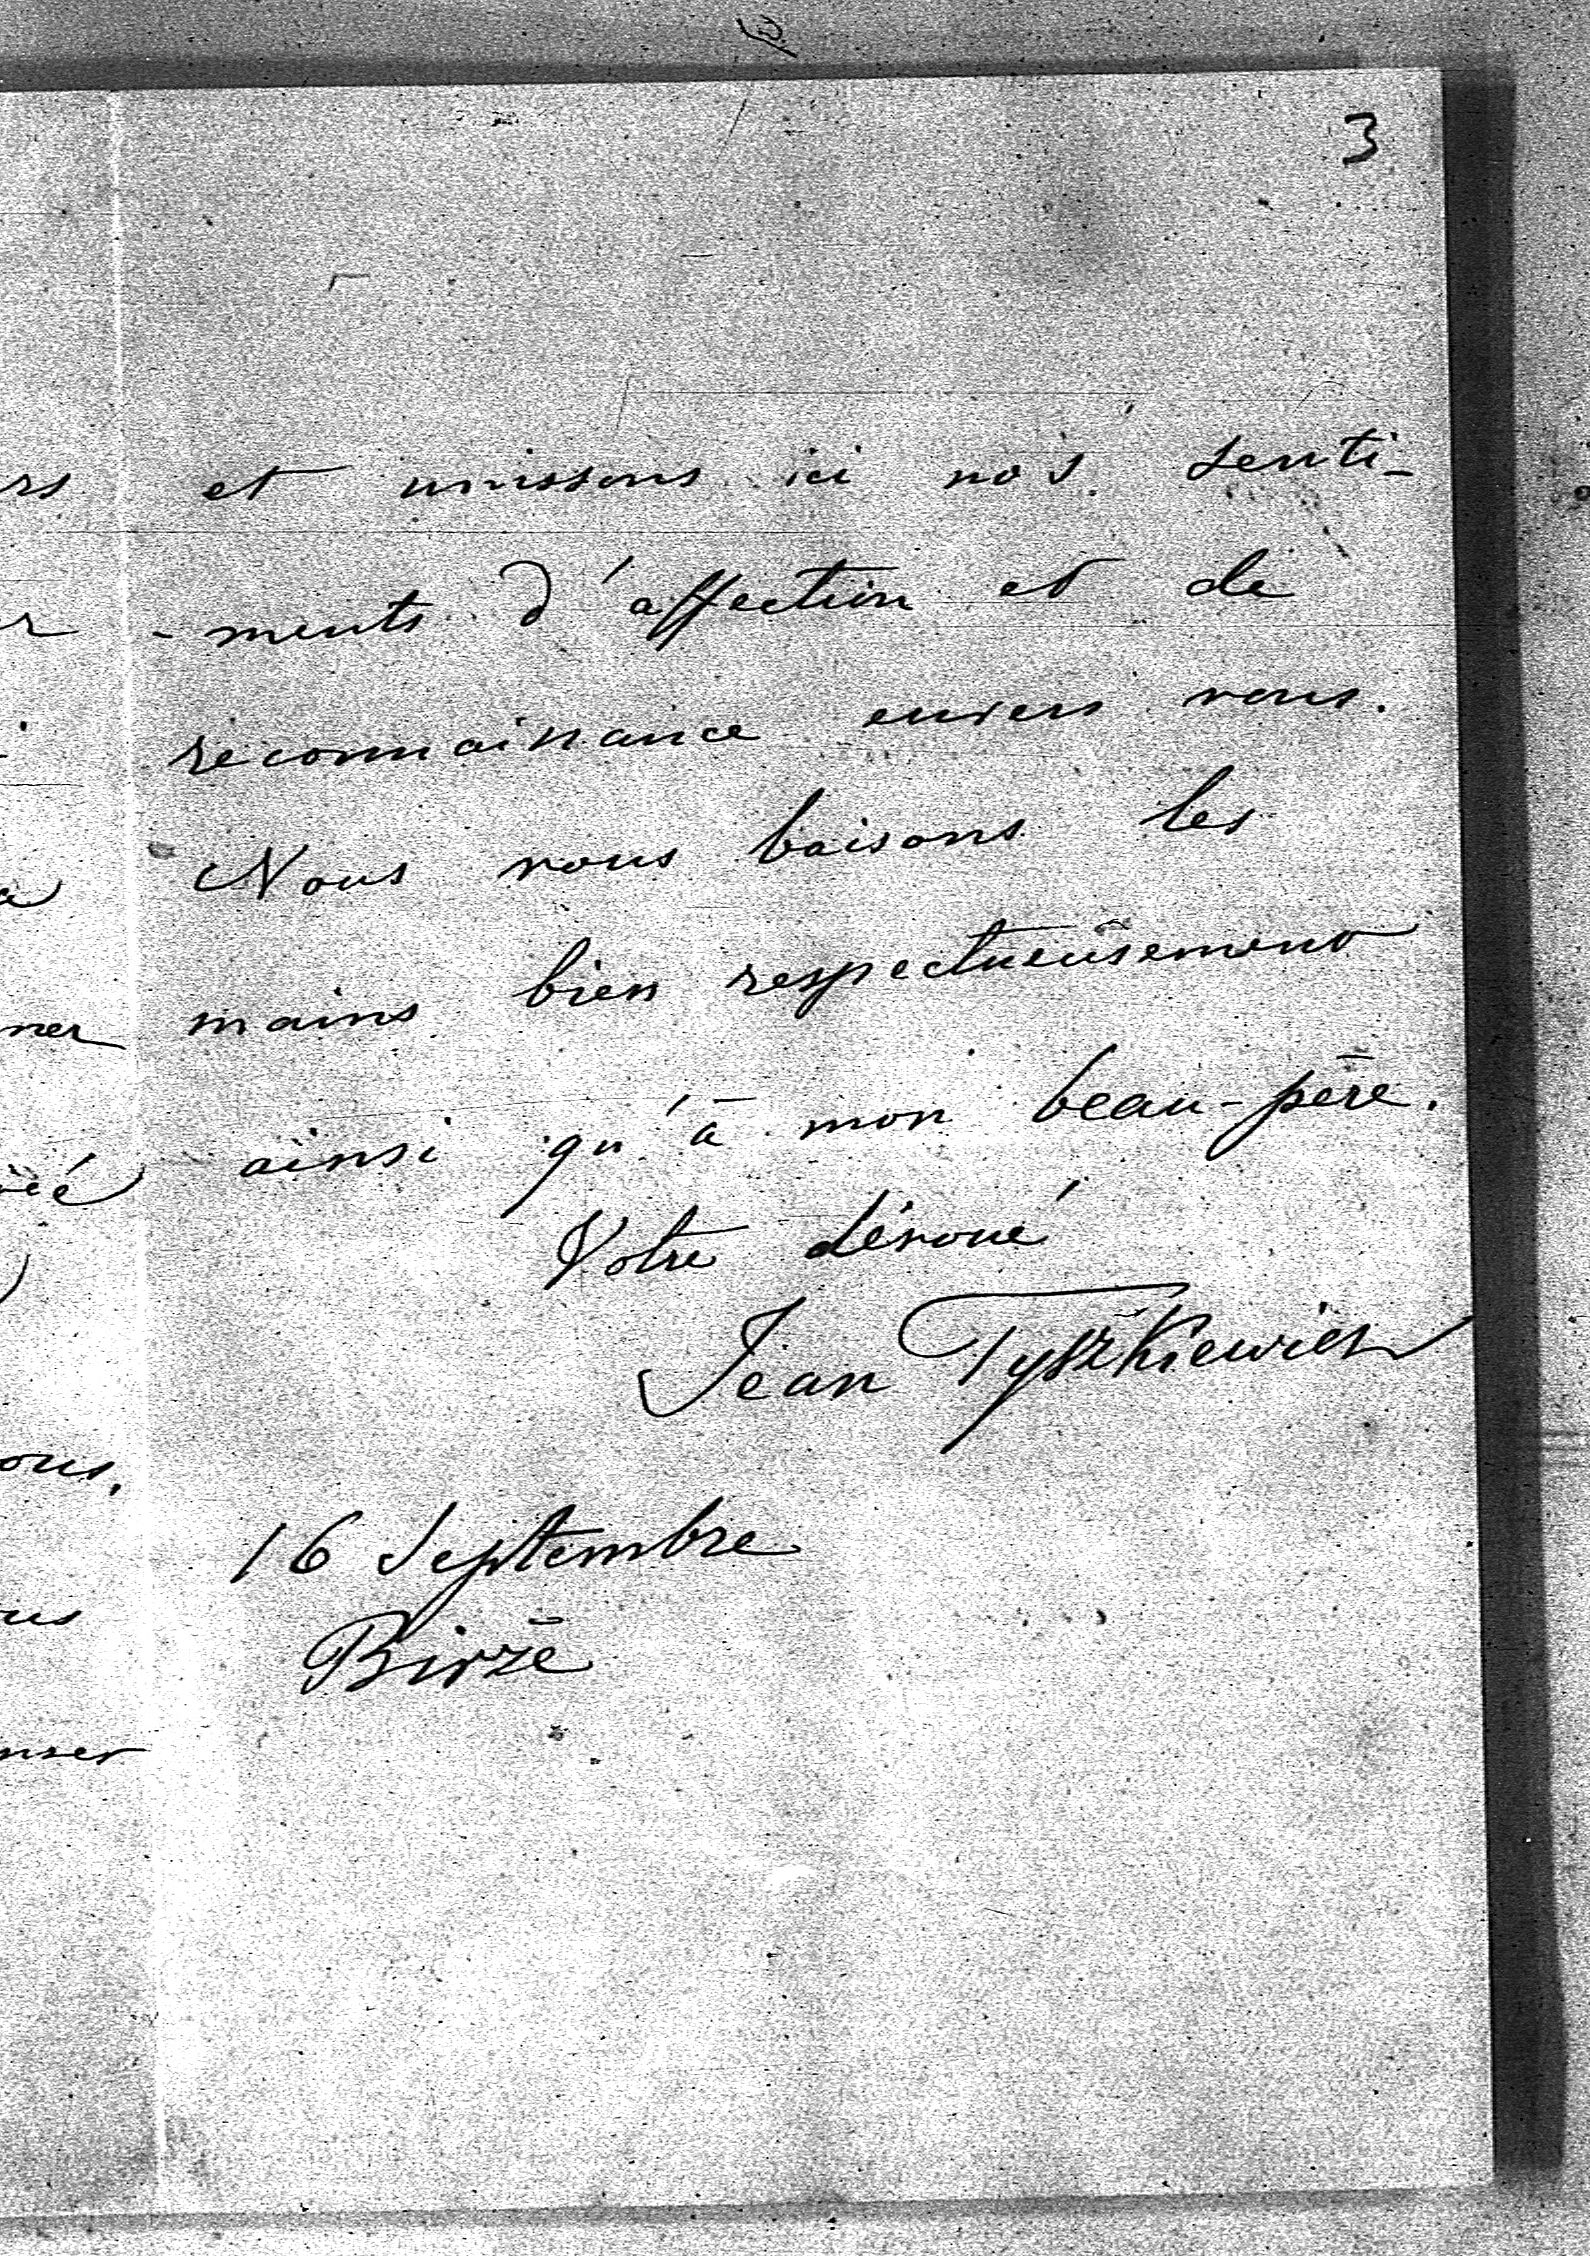 3
et unissons ici nos senti-
-ments d'affection et de
reconnaissance envers vous.
Nous vous baisons les
mains bien respectueusement
ainsi qu'à mon beau-père.
Votre dévoué
Jean Tyszkiewicz
16 Septembre
Birzé
rs
r
a
ner
ié
ous.
us
nser